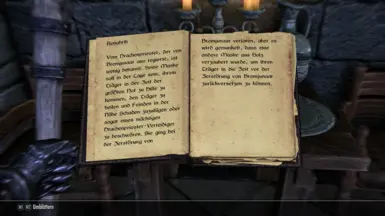 Abschrift
Vom Drachenpriester, der von
Bromjunaar aus regierte, ist
wenig bekannt. Seine Maske
soll in der Lage sein, ihrem
Träger in der Zeit der
größten Not zu Hilfe zu
kommen, den Träger zu
heilen und Feinden in der
Nähe Schaden zuzufügen oder
sogar einen mächtigen
Drachenpriester-Verteidiger
zu beschwören. Sie ging bei
der Zerstörung von
Bromjunaar verloren, aber es
wird gemunkelt, dass eine
andere Maske aus Holz
verzaubert wurde, um ihren
Träger in die Zeit vor der
Zerstörung von Bromjunaar
zurückversetzen zu können.
Umblättern